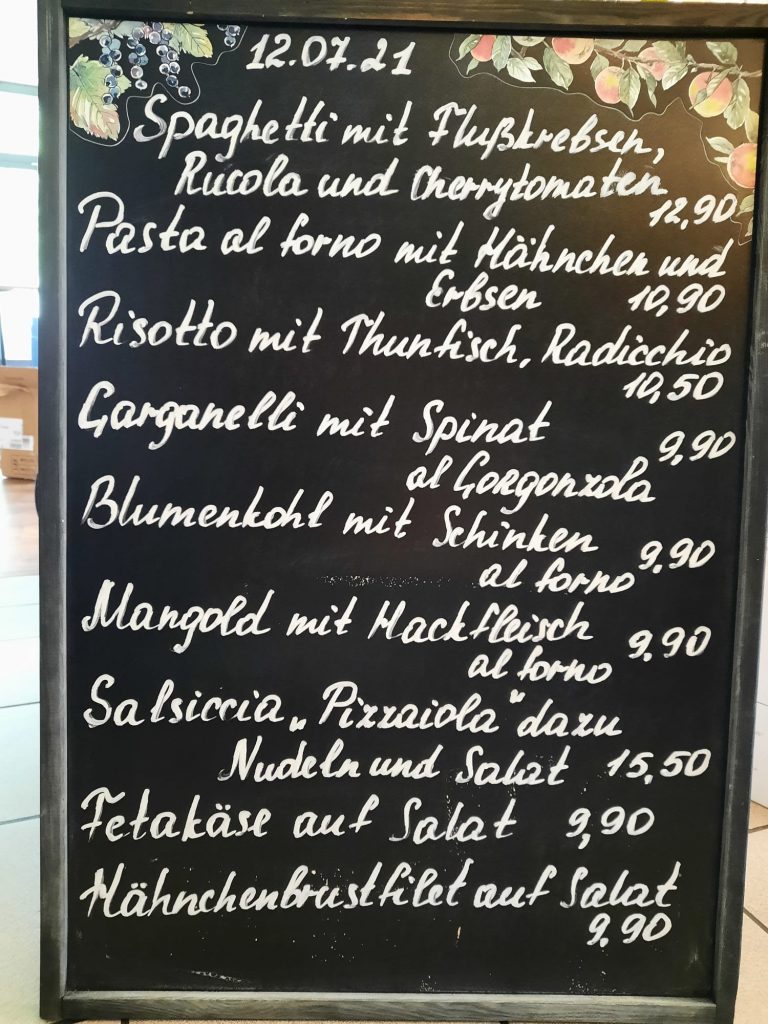 12.07.21
Spaghetti mit Flußkrebsen,
Rucola und Cherrytomaten
12,90
Pasta al forno mit Hähnchen und
Erbsen 10,90
Risotto mit Thunfisch, Radicchio
10,50
Garganelli mit Spinat 9,90
al Gorgonzola
Blumenkohl mit Schinken 9,90
al forno
Mangold mit Hackfleisch 9,90
al forno
Salsiccia „Pizzaiola" dazu
Nudeln und Salat 15,50
Fetakäse auf Salat 9,90
Hähnchenbrustfilet auf Salat
9,90